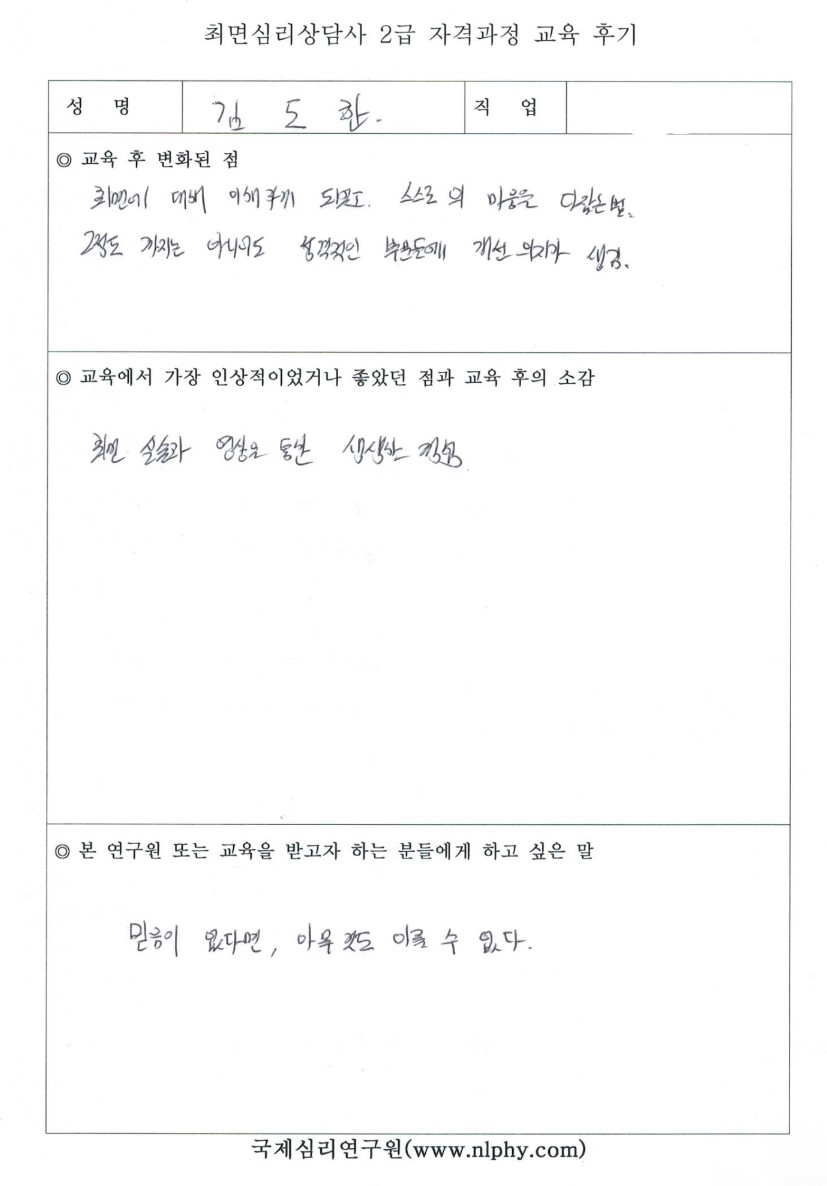 최면심리상담사 2급 자격과정 교육 후기
성 명 김 도 환. 직 업
◎ 교육 후 변화된 점
최면에 대해 이해하게 되었고. 스스로의 마음을
까지는 아니어도 성격적인 부분들에 개선 의지가 생김.
◎ 교육에서 가장 인상적이었거나 좋았던 점과 교육 후의 소감
최면 실습과 영상을 통한 생생한
◎ 본 연구원 또는 교육을 받고자 하는 분들에게 하고 싶은 말
믿음이 없다면, 아무 것도 이룰 수 없다.
국제심리연구원(www.nlphy.com)